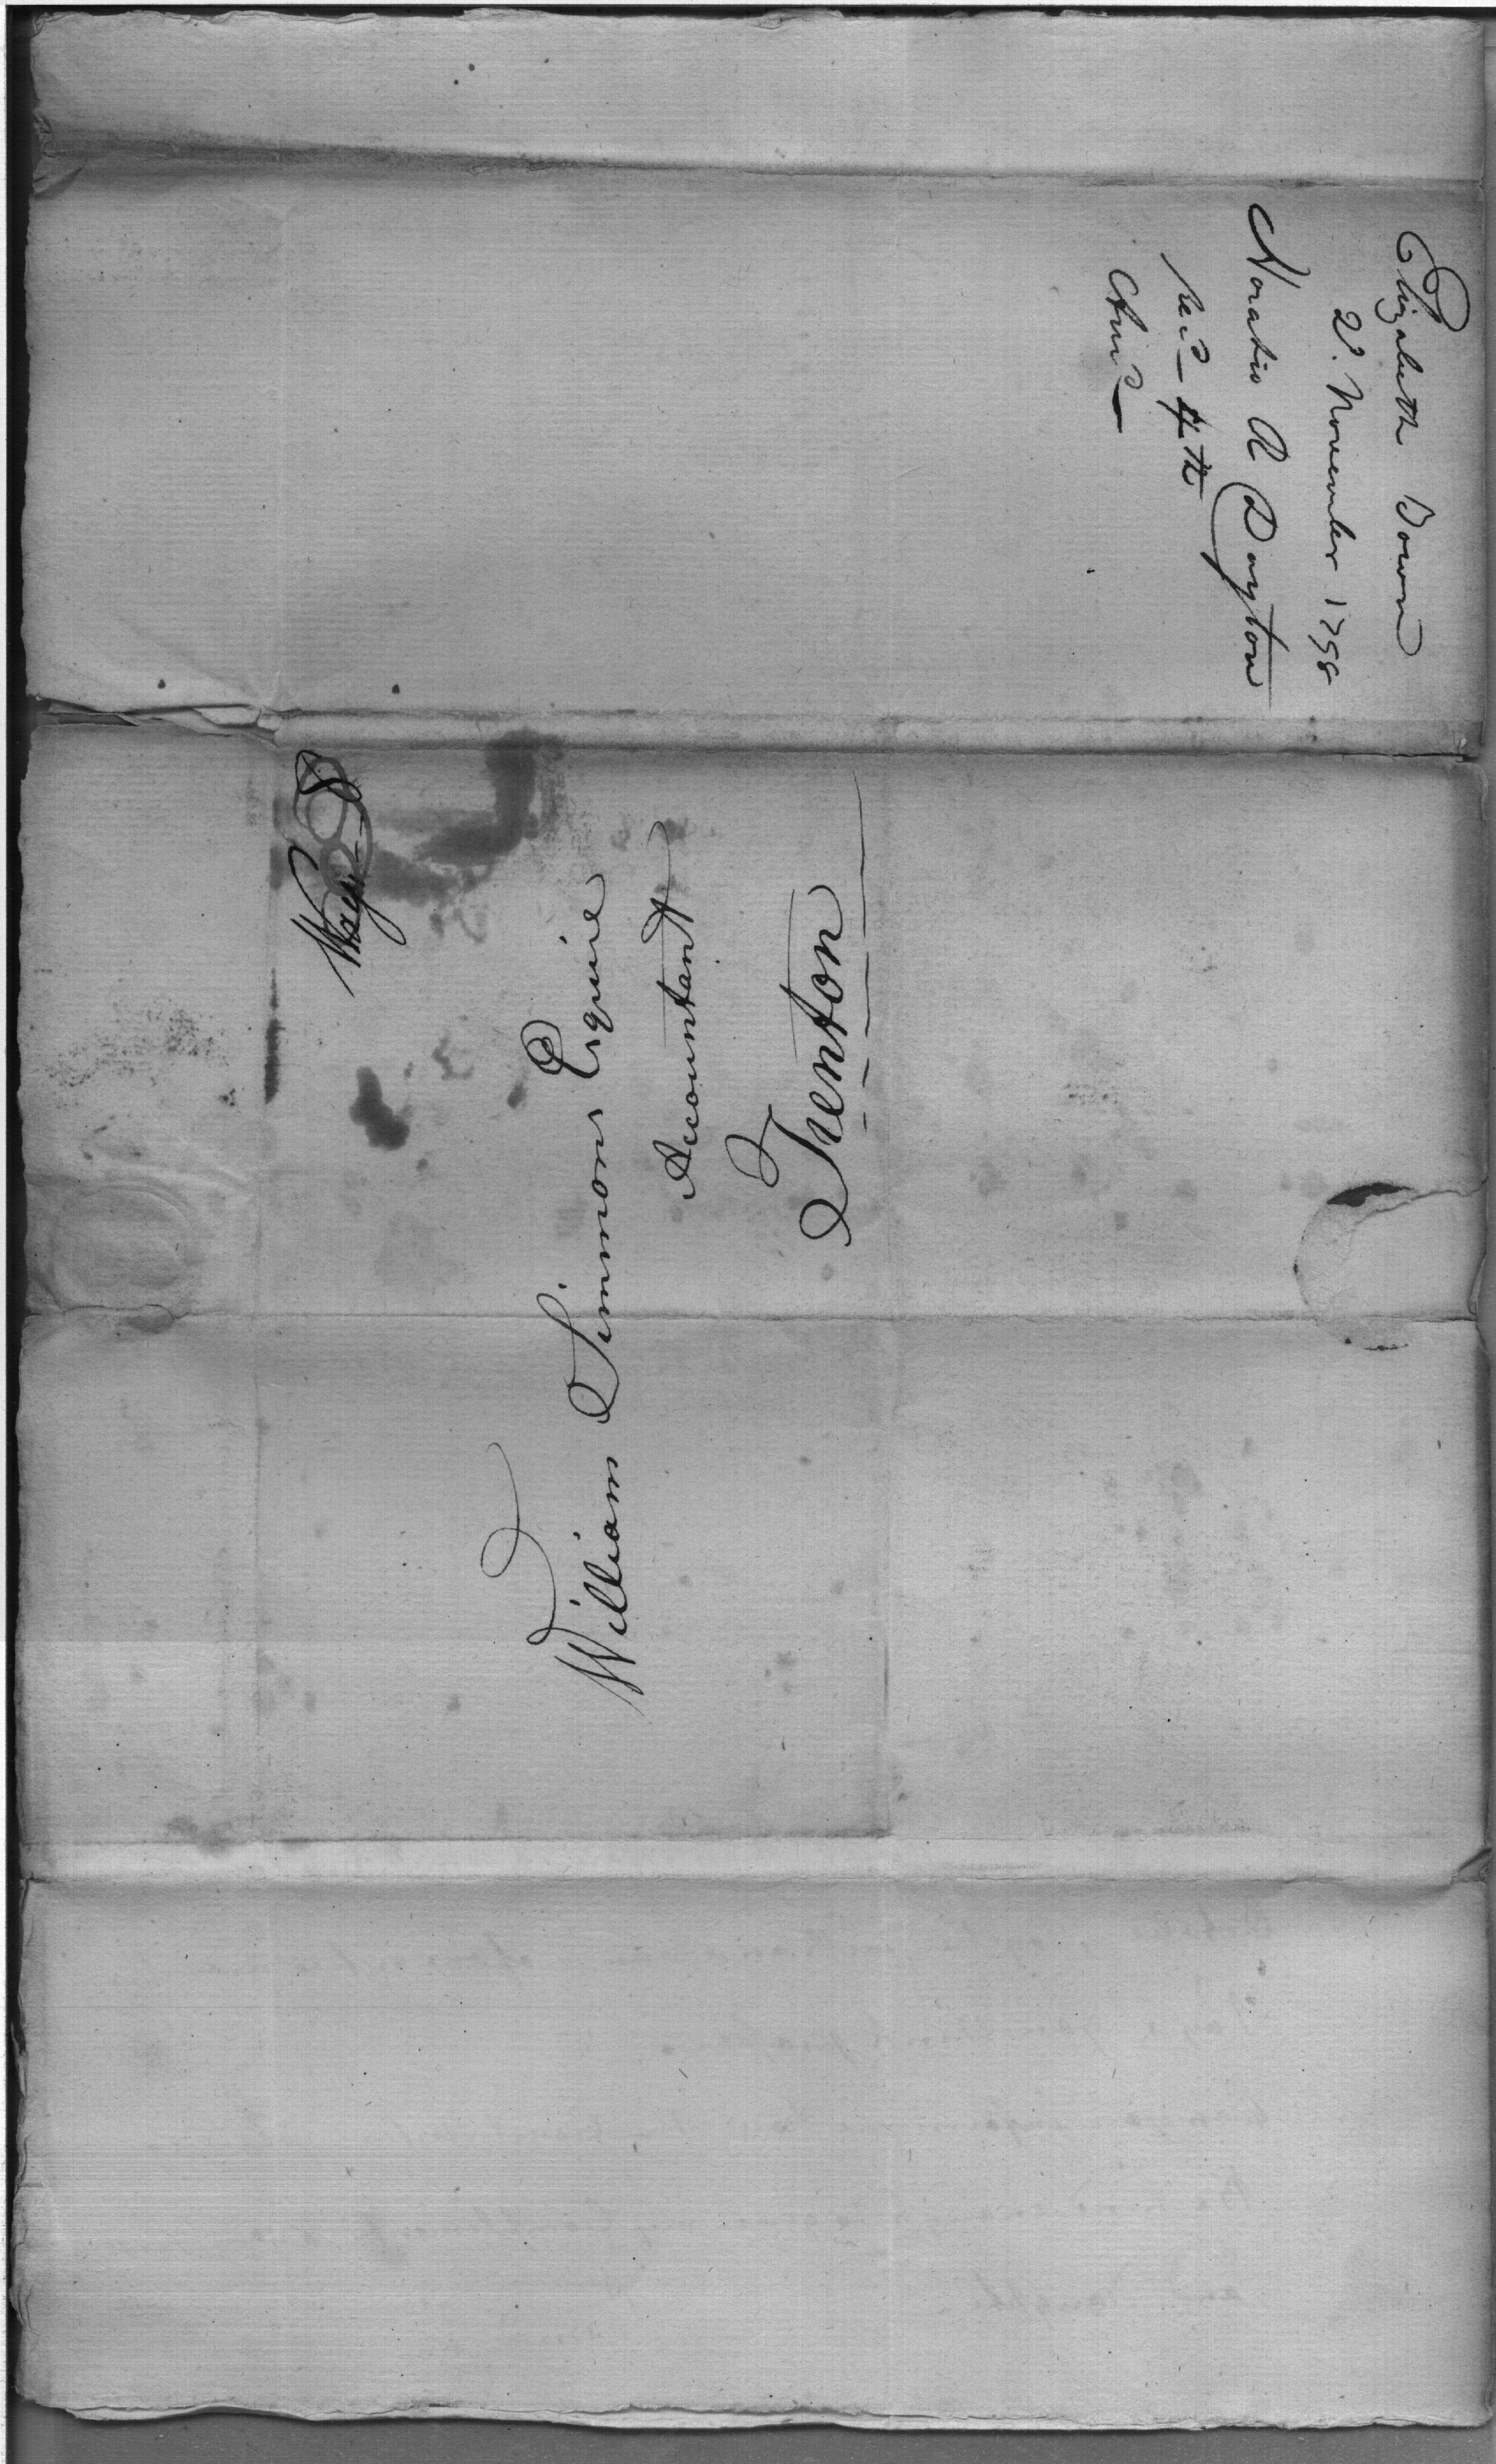 Elizabeth Town
2d. November 1798
Horatio R Dayton
Rec.d 4.th
Ans.d
Way 8
William Simmons Esquire
Accountant
Trenton